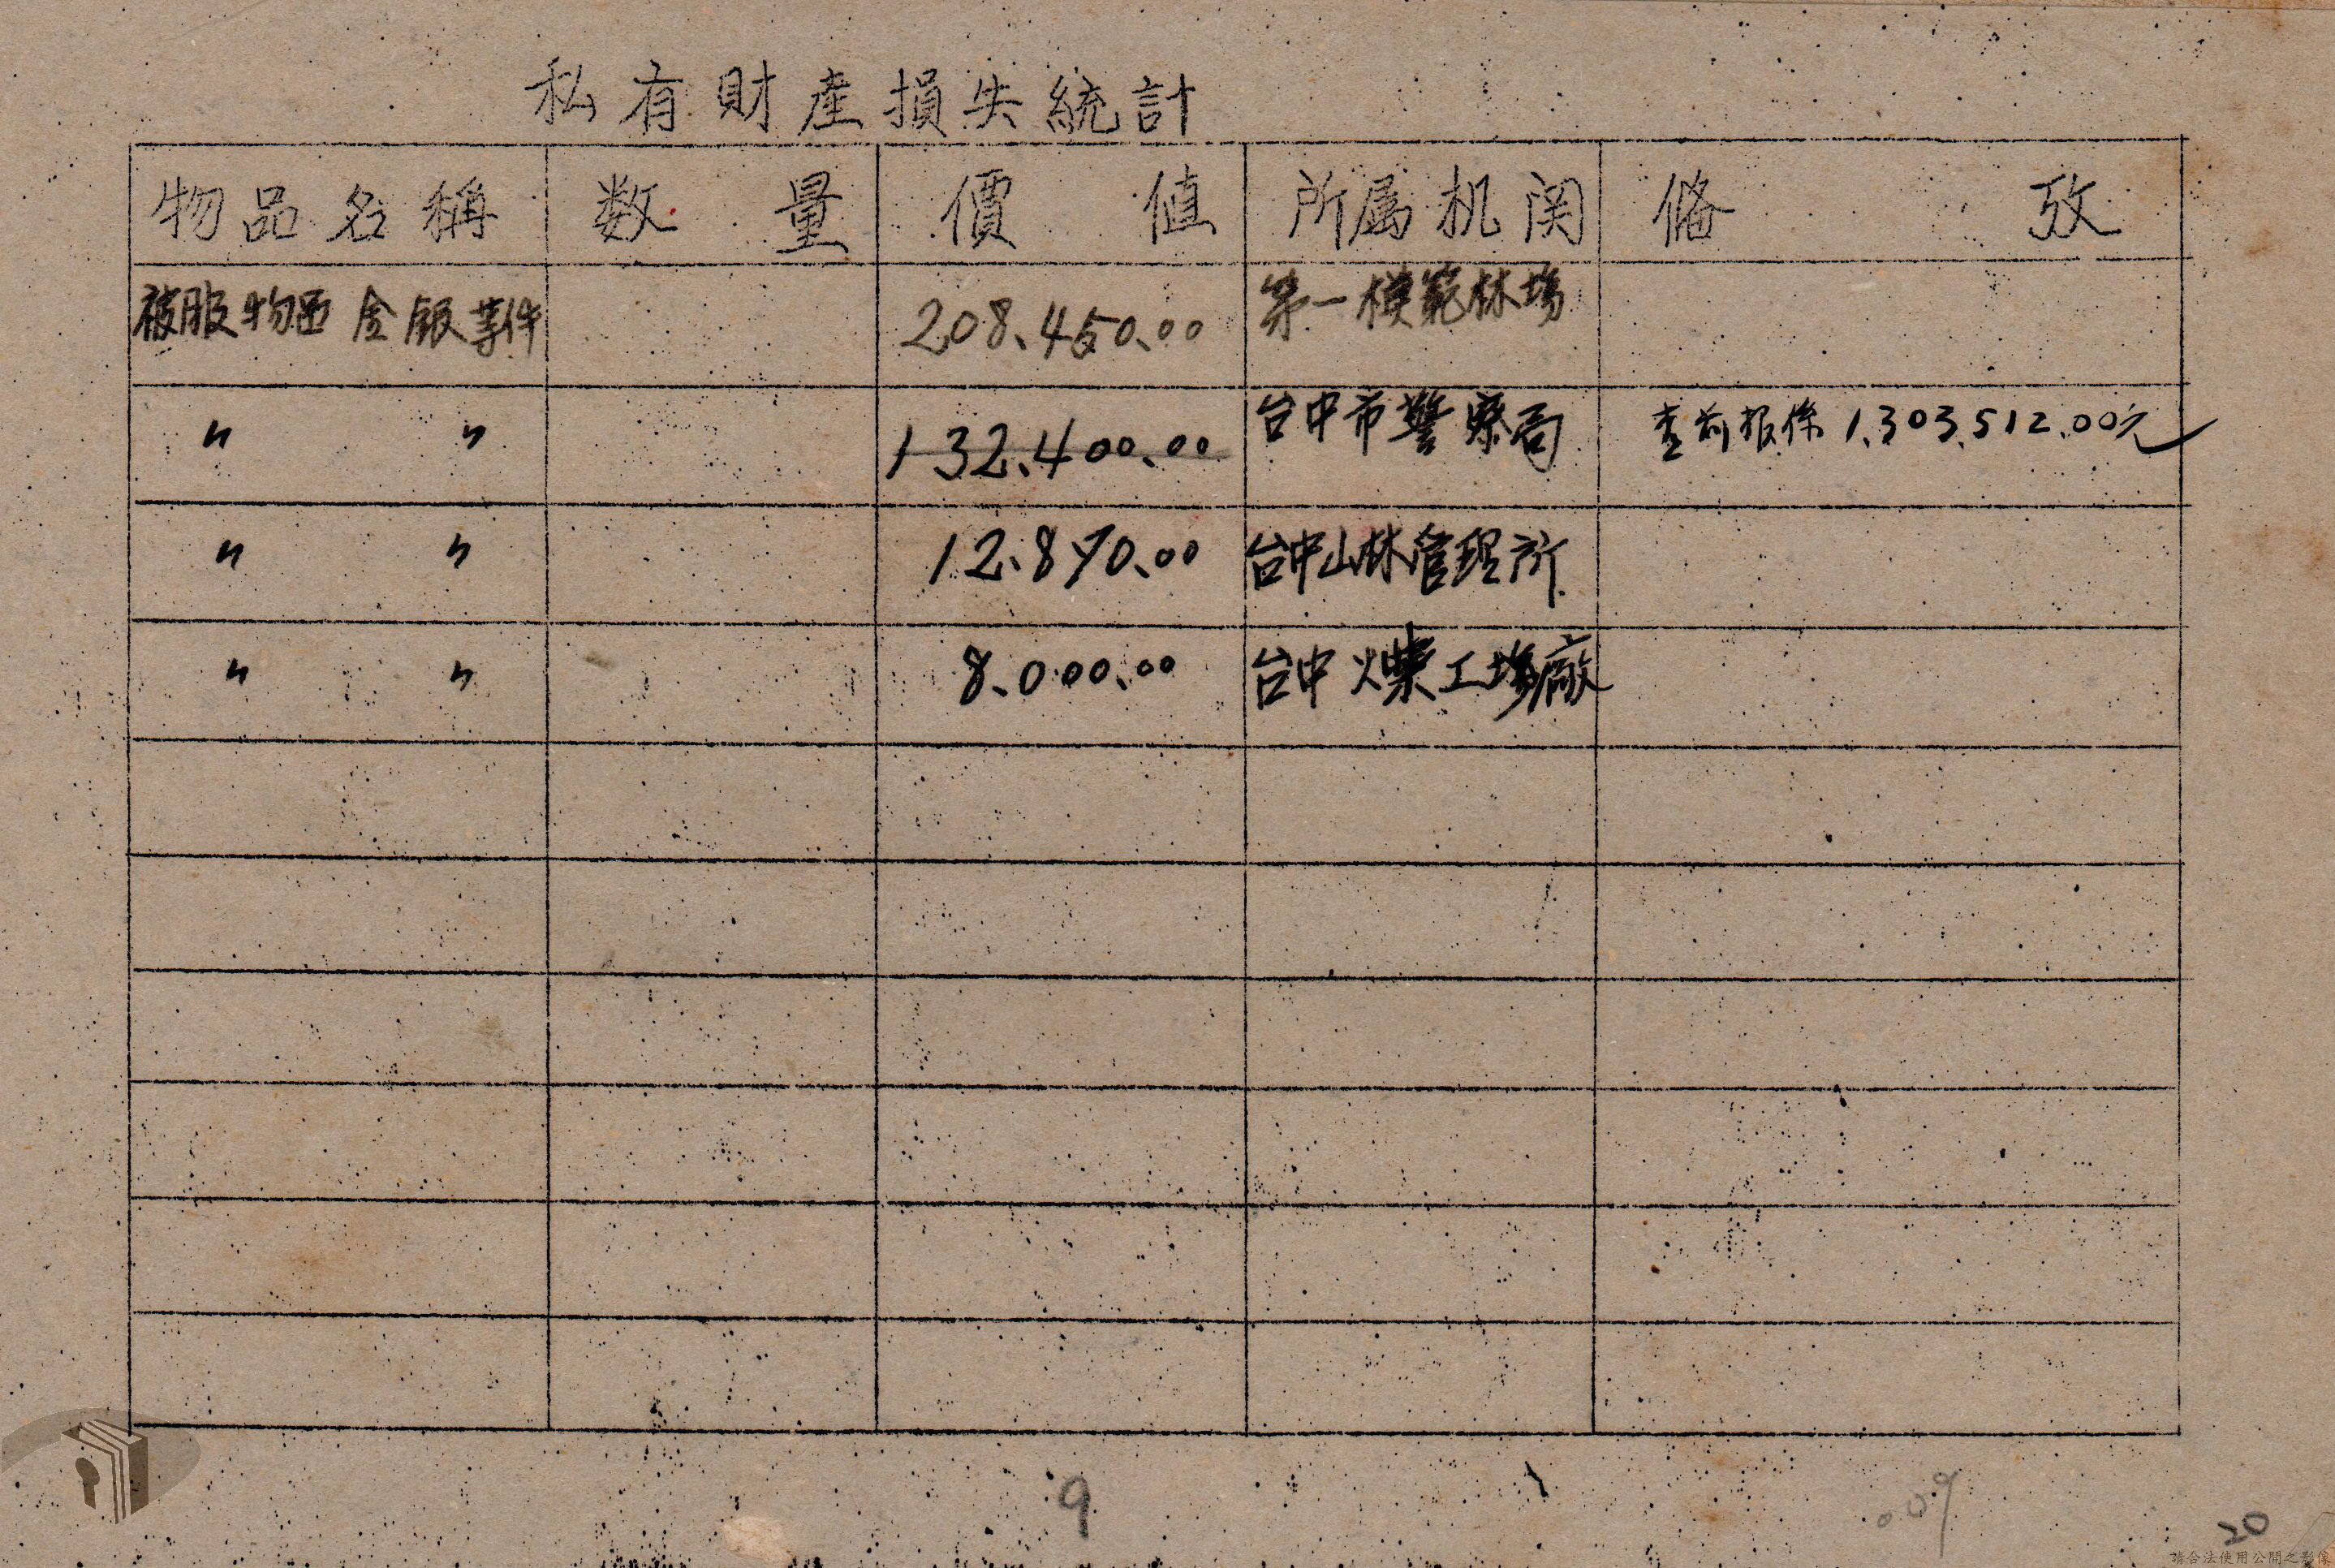 私有財產損失統計
物品名稱 数量 價值 所属机関 俻攷
被服物品 金銀等件 208.450.00 第一模範林場
〃 〃 132.400.00 台中市警察局 查前报係 1.303.512.00元
〃 〃 12.870.00 台中山林管理所
〃 〃 8.000.00 台中火柴工場廠
9
.009
20
請合法使用公開之影像